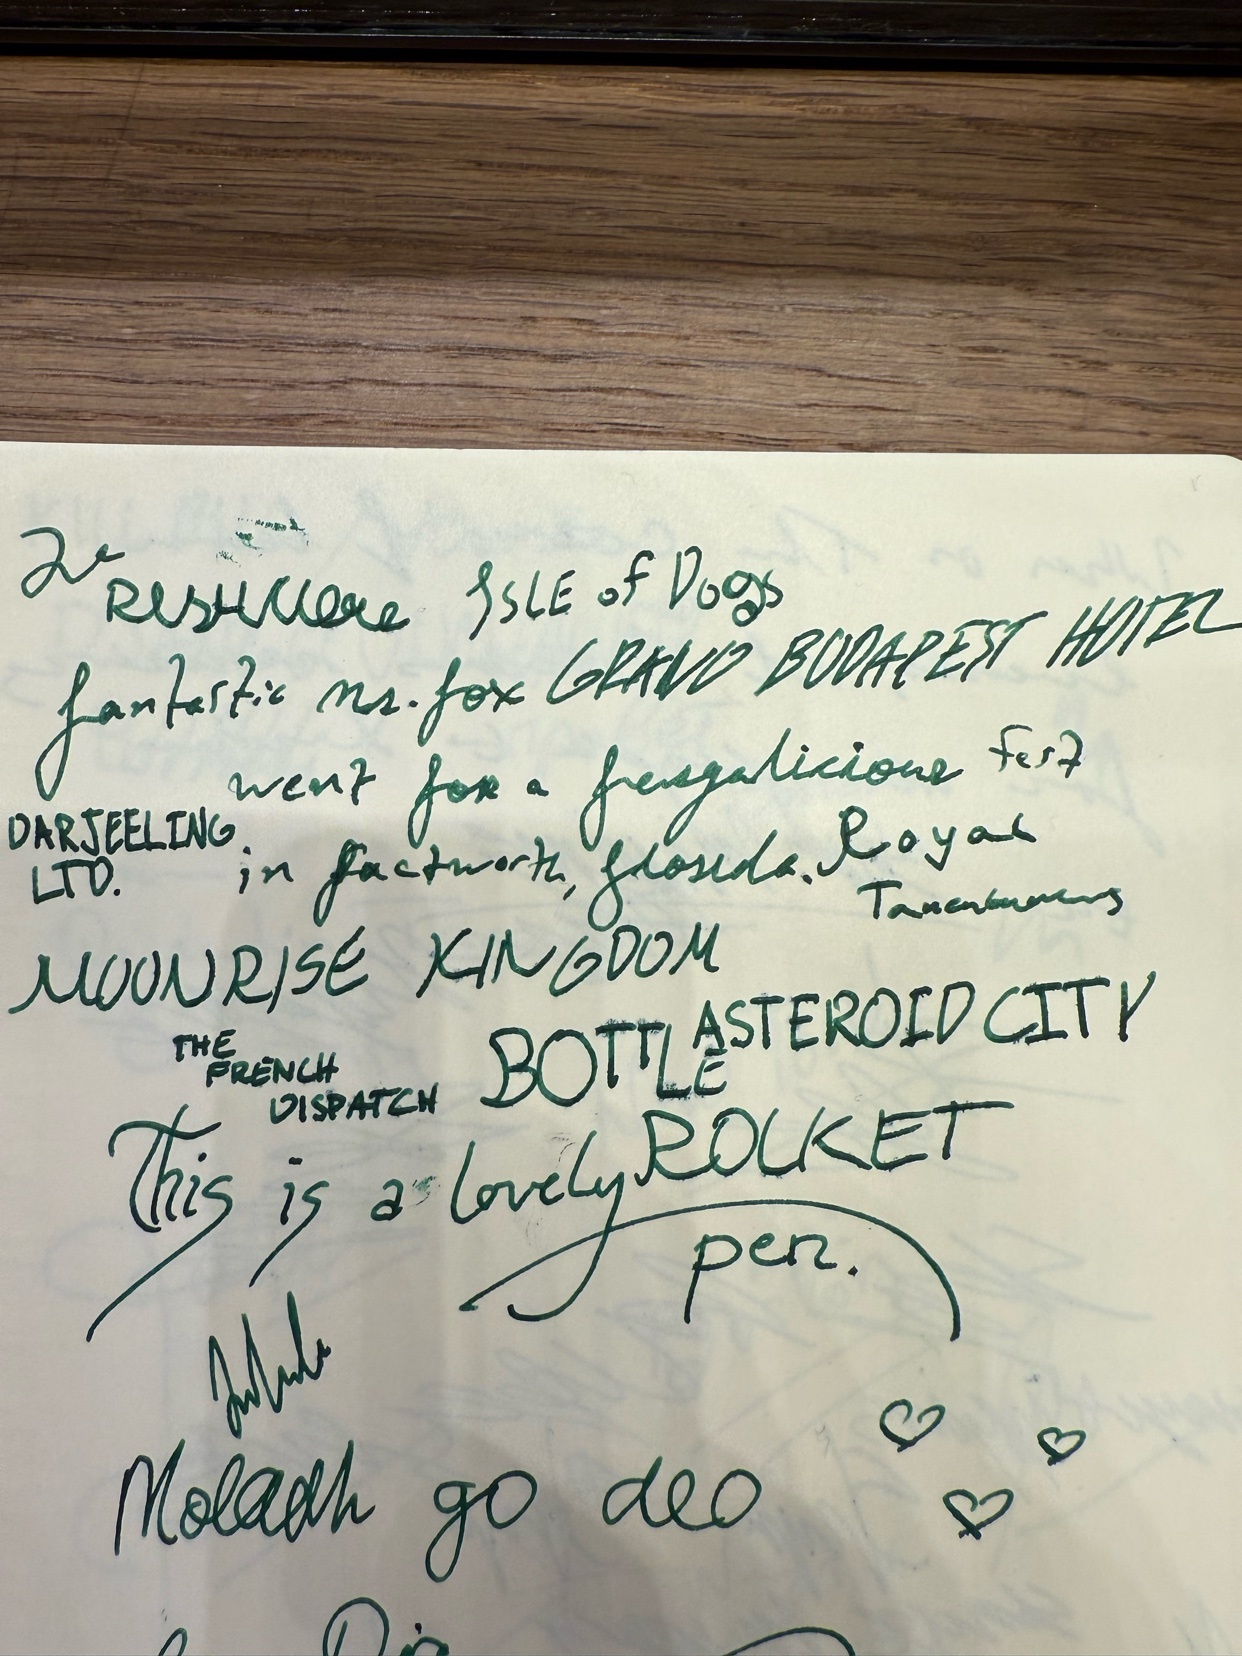 RUSHMORE ISLE of Dogs
fantastic mr. fox GRAND BUDAPEST HOTEL
went for a frugalicious fest
DARJEELING
LTD.
in factworth, florida. Royal
Tanenbaums
MOONRISE KINGDOM
ASTEROID CITY
THE
FRENCH
DISPATCH
BOTTLE
ROCKET
This is a lovely
pen.
Moladh go deo